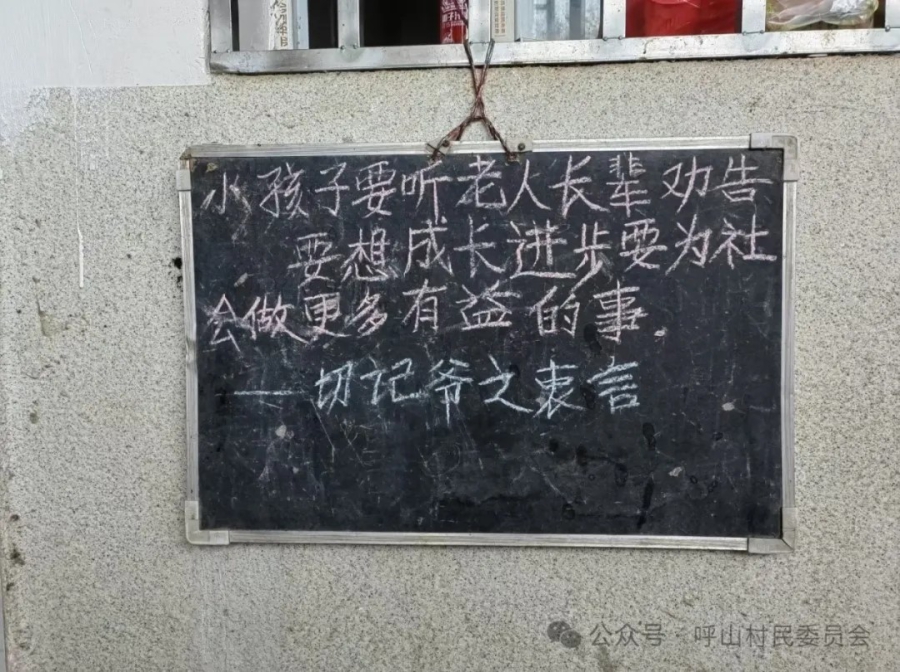 小孩子要听老人长辈劝告
要想成长进步要为社
会做更多有益的事.
——切记爷之衷言
公众号·呼山村民委员会